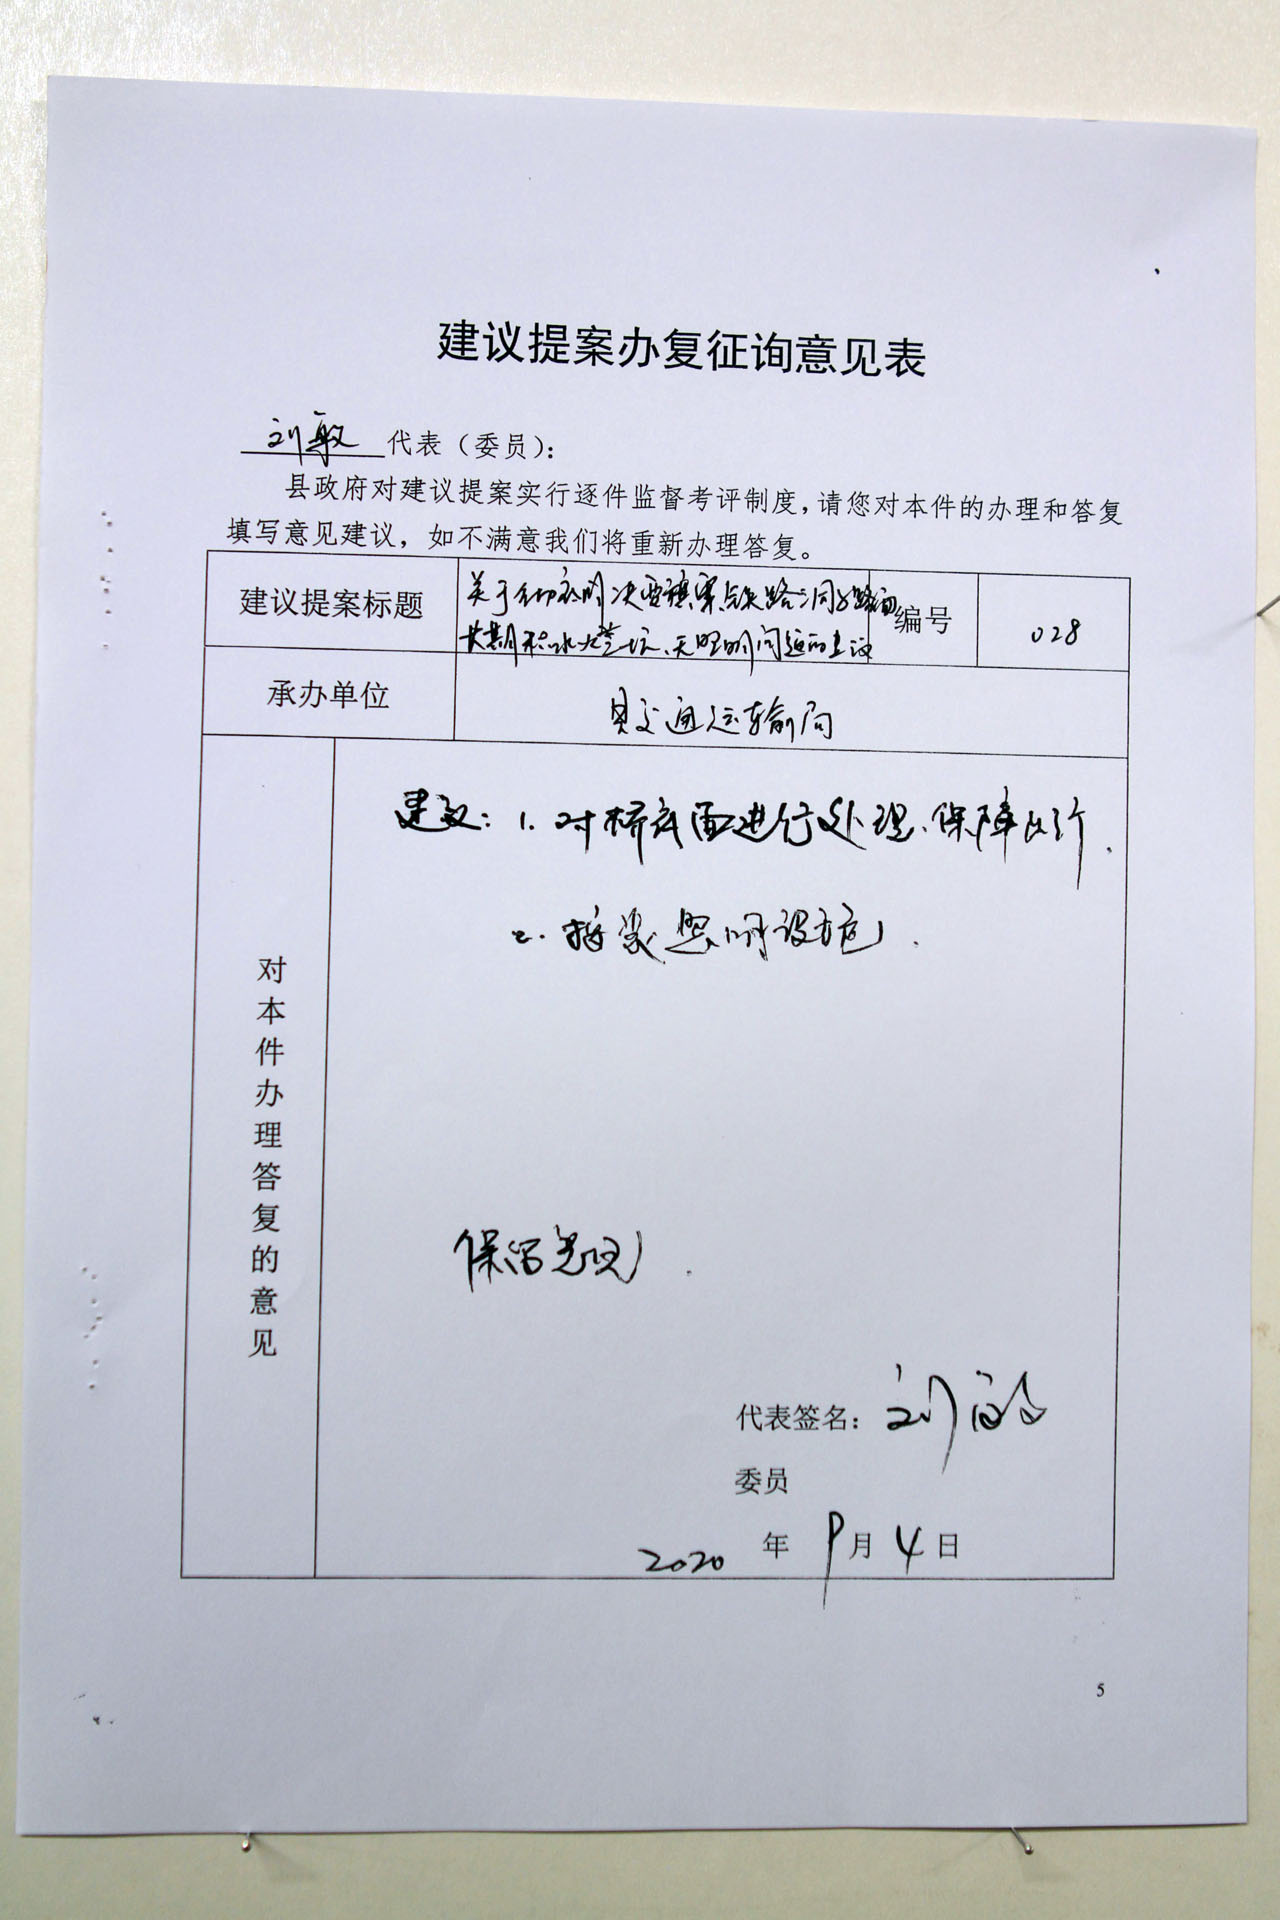 建议提案办复征询意见表
刘敏 代表（委员）：
县政府对建议提案实行逐件监督考评制度，请您对本件的办理和答复
填写意见建议，如不满意我们将重新办理答复。
建议提案标题
关于 决 铁路洞 路面
长期积水大 坑、无照明问题的建议
编号
028
承办单位
县交通运输局
对本件办理答复的意见
建议：1. 对桥底面进行处理、保障出行．
2. 接装照明设施．
保留意见．
代表签名：刘敏
委员
2020 年 9 月 4 日
5